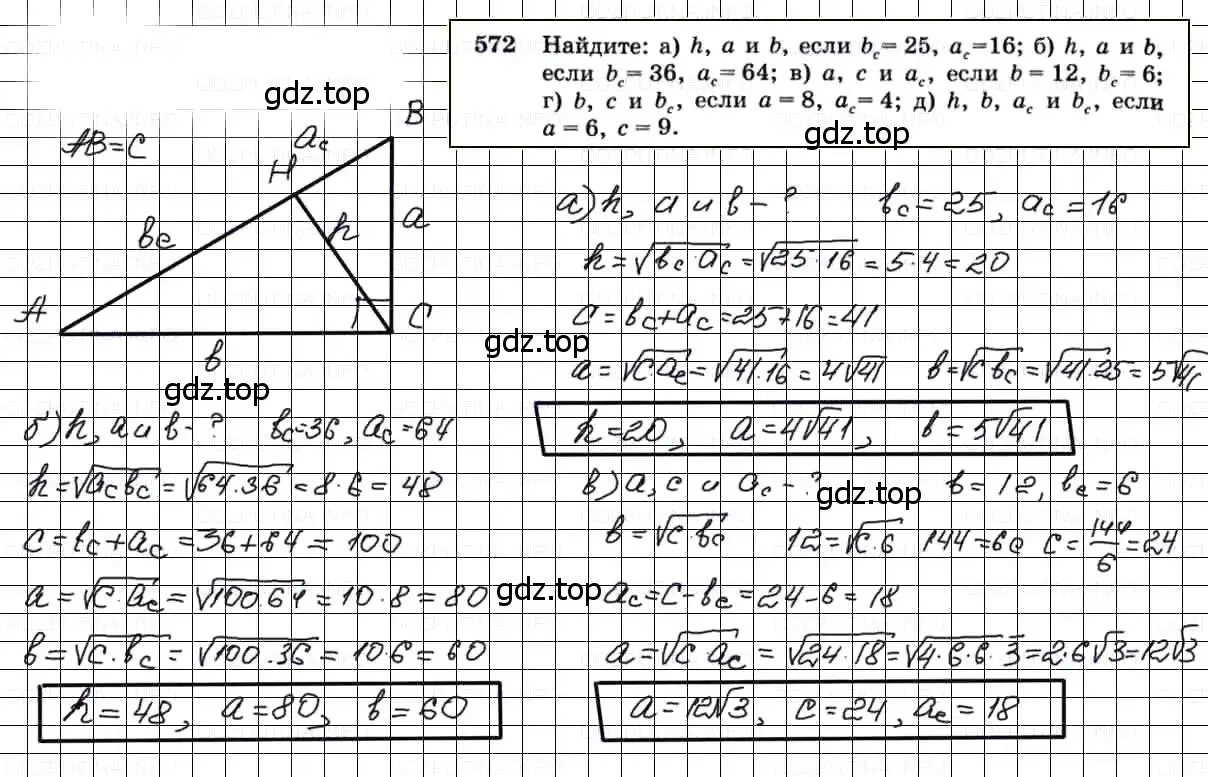 572 Найдите: а) h, a и b, если b_c = 25, a_c = 16; б) h, a и b,
если b_c = 36, a_c = 64; в) a, c и a_c, если b = 12, b_c = 6;
г) b, c и b_c, если a = 8, a_c = 4; д) h, b, a_c и b_c, если
a = 6, c = 9.
gdz.top
gdz.top
AB=C
B
a_c
H
b_c
h
a
A
C
b
gdz.top
gdz.top
а) h, a и b - ? b_c = 25, a_c = 16
h = √(b_c·a_c) = √(25·16) = 5·4 = 20
c = b_c + a_c = 25+16 = 41
a = √(c·a_c) = √(41·16) = 4√41 b = √(c·b_c) = √(41·25) = 5√41
h = 20, a = 4√41, b = 5√41
б) h, a и b - ? b_c = 36, a_c = 64
h = √(a_c b_c) = √(64·36) = 8·6 = 48
c = b_c + a_c = 36+64 = 100
a = √(c·a_c) = √(100·64) = 10·8 = 80
b = √(c·b_c) = √(100·36) = 10·6 = 60
h = 48, a = 80, b = 60
gdz.top
gdz.top
в) a, c и a_c - ? b = 12, b_c = 6
b = √(c·b_c) 12 = √(c·6) 144 = 6c c = 144/6 = 24
a_c = c - b_c = 24 - 6 = 18
a = √(c·a_c) = √(24·18) = √(4·6·6·3) = 2·6√3 = 12√3
a = 12√3, c = 24, a_c = 18